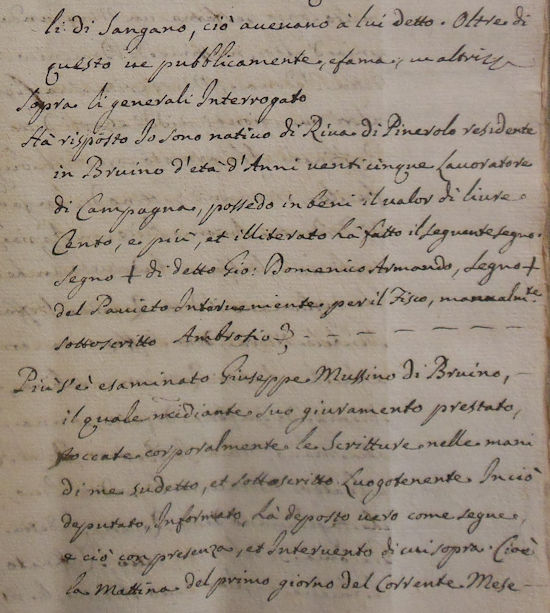 li di Sangano, ciò avevano à lui detto. Oltre di
questo ne pubblicamente, e fama,
Sopra li generali Interrogato
Hà risposto Io sono nativo di Riva di Pinerolo residente
in Bruino d'età d'Anni venti cinque Lavoratore
di Campagna, possedo in beni il valor di livre
Cento, e più, et illiterato hà fatto il seguente segno.
Segno + di detto Gio: Domenico Armando, Segno +
del Panieto Interveniente per il Fisco, manualm.te
sottoscritto Ambrosio
Più s'è esaminato Giuseppe Mussino di Bruino,
il quale mediante suo giuramento prestato,
toccate corporalmente le Scritture nelle mani
di me sudetto, et sottoscritto Luogotenente In ciò
deputato, Informato, hà deposto vero come segue,
e ciò con presenza, et Intervento di cui sopra. Cioè
la Mattina del primo giorno del Corrente Mese